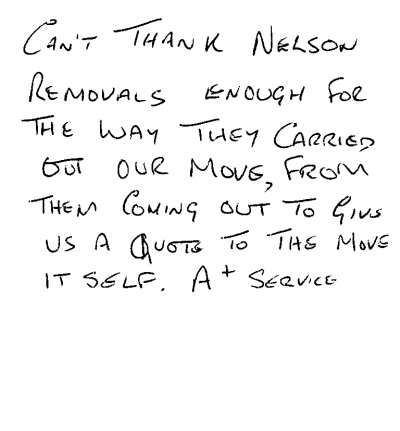 CAN'T THANK NELSON
REMOVALS ENOUGH FOR
THE WAY THEY CARRIED
OUT OUR MOVE, FROM
THEM COMING OUT TO GIVE
US A QUOTE TO THE MOVE
IT SELF. A+ SERVICE